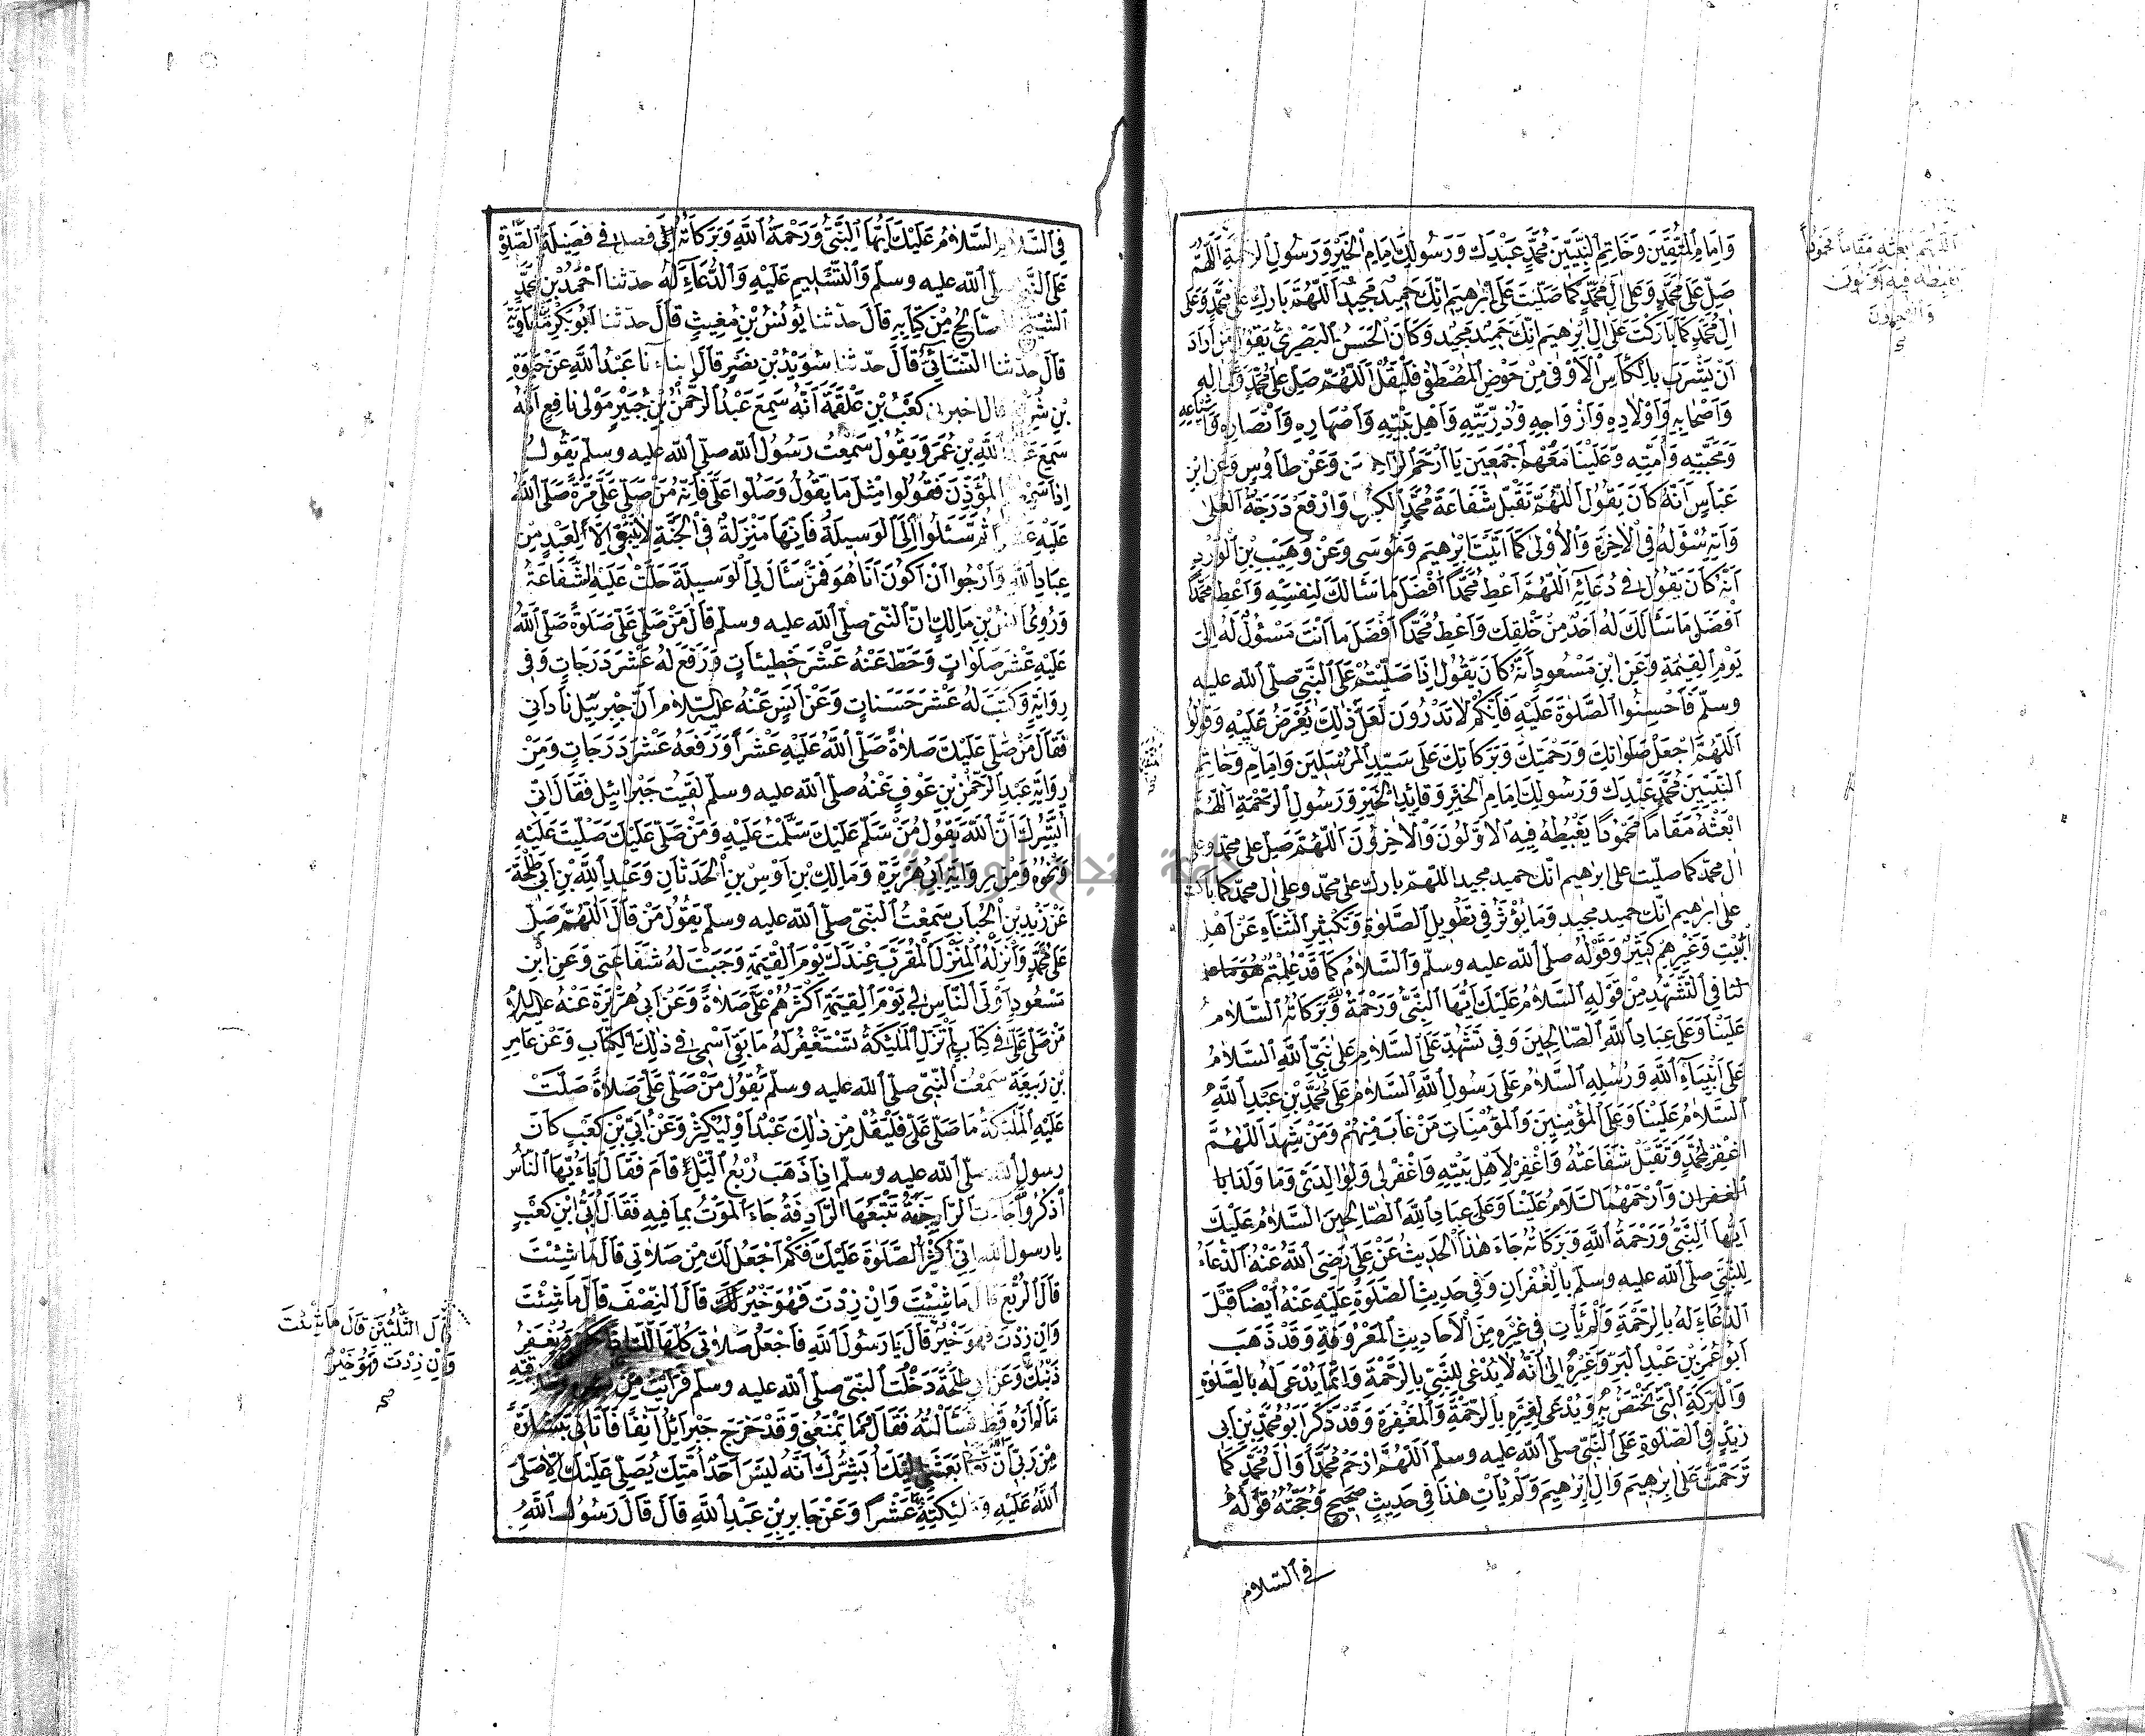 وَاِمَامِ الْمُتَّقِينَ وَخَاتِمِ النَّبِيِّينَ مُحَمَّدٍ عَبْدِكَ وَرَسُولِكَ اِمَامِ الْخَيْرِ وَرَسُولِ الرَّحْمَةِ اَللّٰهُمَّ
صَلِّ عَلَى مُحَمَّدٍ وَعَلَى اٰلِ مُحَمَّدٍ كَمَا صَلَّيْتَ عَلَى اِبْرٰهِيمَ اِنَّكَ حَمِيدٌ مَجِيدٌ اَللّٰهُمَّ بَارِكْ عَلَى مُحَمَّدٍ وَعَلَى
اٰلِ مُحَمَّدٍ كَمَا بَارَكْتَ عَلَى اٰلِ اِبْرٰهِيمَ اِنَّكَ حَمِيدٌ مَجِيدٌ وَكَانَ الْحَسَنُ الْبَصْرِيُّ يَقُولُ مَنْ اَرَادَ
اَنْ يَشْرَبَ بِالْكَأْسِ الْاَوْفَى مِنْ حَوْضِ الْمُصْطَفٰى فَلْيَقُلْ اَللّٰهُمَّ صَلِّ عَلَى مُحَمَّدٍ وَعَلَى اٰلِهِ
وَاَصْحَابِهِ وَاَوْلَادِهِ وَاَزْوَاجِهِ وَذُرِّيَّتِهِ وَاَهْلِ بَيْتِهِ وَاَصْهَارِهِ وَاَنْصَارِهِ وَاَشْيَاعِهِ
وَمُحِبِّيهِ وَاُمَّتِهِ وَعَلَيْنَا مَعَهُمْ اَجْمَعِينَ يَا اَرْحَمَ الرَّاحِمِينَ وَعَنْ طَاوُسٍ وَعَنِ ابْنِ
عَبَّاسٍ اَنَّهُ كَانَ يَقُولُ اَللّٰهُمَّ تَقَبَّلْ شَفَاعَةَ مُحَمَّدٍ الْكُبْرٰى وَارْفَعْ دَرَجَتَهُ الْعُلْيَا
وَاٰتِهِ سُؤْلَهُ فِي الْاٰخِرَةِ وَالْاُولَى كَمَا اٰتَيْتَ اِبْرٰهِيمَ وَمُوسَى وَعَنْ وُهَيْبِ بْنِ الْوَرْدِ
اَنَّهُ كَانَ يَقُولُ فِي دُعَائِهِ اَللّٰهُمَّ اَعْطِ مُحَمَّدًا اَفْضَلَ مَا سَأَلَكَ لِنَفْسِهِ وَاَعْطِ مُحَمَّدًا
اَفْضَلَ مَا سَئَالَكَ لَهُ اَحَدٌ مِنْ خَلْقِكَ وَاَعْطِ مُحَمَّدًا اَفْضَلَ مَا اَنْتَ مَسْئُولٌ لَهُ اِلَى
يَوْمِ الْقِيٰمَةِ وَعَنِ ابْنِ مَسْعُودٍ اَنَّهُ كَانَ يَقُولُ اِذَا صَلَّيْتُمْ عَلَى النَّبِيِّ صلّى الله عليه
وسلّم فَاَحْسِنُوا الصَّلٰوةَ عَلَيْهِ فَاِنَّكُمْ لَا تَدْرُونَ لَعَلَّ ذٰلِكَ يُعْرَضُ عَلَيْهِ وَقُولُوا
اَللّٰهُمَّ اجْعَلْ صَلَوَاتِكَ وَرَحْمَتَكَ وَبَرَكَاتِكَ عَلَى سَيِّدِ الْمُرْسَلِينَ وَاِمَامِ وَخَاتِمِ
النَّبِيِّينَ مُحَمَّدٍ عَبْدِكَ وَرَسُولِكَ اِمَامِ الْخَيْرِ وَقَائِدِ الْخَيْرِ وَرَسُولِ الرَّحْمَةِ اَللّٰهُمَّ
ابْعَثْهُ مَقَامًا مَحْمُودًا يَغْبِطُهُ فِيهِ الْاَوَّلُونَ وَالْاٰخِرُونَ اَللّٰهُمَّ صَلِّ على محمّد وعلى
اٰل محمّد كما صلّيت على ابرٰهيم انّك حميد مجيد اللّٰهمّ بارك على محمّد وعلى اٰل محمّد كما باركت
على ابرٰهيم انّك حميد مجيد وَمَا يُؤْثَرُ فِي تَطْوِيلِ الصَّلٰوةِ وَتَكْثِيرِ الثَّنَاءِ عَنْ اَهْلِ
الْبَيْتِ وَغَيْرِهِمْ كَثِيرٌ وَقَوْلُهُ صلّى الله عليه وسلّم وَالسَّلَامُ كَمَا قَدْ عُلِّمْتُمْ هُوَ مَا عَلَّمَ
لَنَا فِي التَّشَهُّدِ مِنْ قَوْلِهِ السَّلَامُ عَلَيْكَ اَيُّهَا النَّبِيُّ وَرَحْمَةُ اللَّهِ وَبَرَكَاتُهُ السَّلَامُ
عَلَيْنَا وَعَلَى عِبَادِ اللَّهِ الصَّالِحِينَ وَفِي تَشَهُّدِ عَلِيٍّ السَّلَامُ عَلَى نَبِيِّ اللَّهِ السَّلَامُ
عَلَى اَنْبِيَاءِ اللَّهِ وَرُسُلِهِ السَّلَامُ عَلَى رَسُولِ اللَّهِ السَّلَامُ عَلَى مُحَمَّدِ بْنِ عَبْدِ اللَّهِ
السَّلَامُ عَلَيْنَا وَعَلَى الْمُؤْمِنِينَ وَالْمُؤْمِنَاتِ مَنْ غَابَ مِنْهُمْ وَمَنْ شَهِدَ اَللّٰهُمَّ
اغْفِرْ لِمُحَمَّدٍ وَتَقَبَّلْ شَفَاعَتَهُ وَاغْفِرْ لِاَهْلِ بَيْتِهِ وَاغْفِرْ لِى وَلِوَالِدَيَّ وَمَا وَلَدَا بِا
الْغُفْرَانِ وَارْحَمْهُمَا السَّلَامُ عَلَيْنَا وَعَلَى عِبَادِ اللَّهِ الصَّالِحِينَ السَّلَامُ عَلَيْكَ
اَيُّهَا النَّبِيُّ وَرَحْمَةُ اللَّهِ وَبَرَكَاتُهُ جَاءَ هٰذَا الْحَدِيثُ عَنْ عَلِيٍّ رَضِىَ اللَّهُ عَنْهُ الدُّعَاءُ
لِلنَّبِيِّ صلّى الله عليه وسلّم بِالْغُفْرَانِ وَفِي حَدِيثِ الصَّلَوةِ عَلَيْهِ عَنْهُ اَيْضًا قَبْلَ
الدُّعَاءِ لَهُ بِالرَّحْمَةِ وَلَمْ يَأْتِ فِي غَيْرِهِ مِنَ الْاَحَادِيثِ الْمَعْرُوفَةِ وَقَدْ ذَهَبَ
اَبُو عُمَرَ بْنِ عَبْدِ الْبَرِّ وَغَيْرُهُ اِلَى اَنَّهُ لَا يُدْعٰى لِلنَّبِيِّ بِالرَّحْمَةِ وَاِنَّمَا يُدْعَى لَهُ بِالصَّلٰوةِ
وَالْبَرَكَةِ الَّتِي تَخْتَصُّ بِهِ وَيُدْعَى لِغَيْرِهِ بِالرَّحْمَةِ وَالْمَغْفِرَةِ وَقَدْ ذَكَرَ اَبُو مُحَمَّدِ بْنِ اَبِى
زَيْدٍ فِي الصَّلٰوةِ عَلَى النَّبِيِّ صلّى الله عليه وسلّم اَللّٰهُمَّ ارْحَمْ مُحَمَّدًا وَاٰلَ مُحَمَّدٍ كَمَا
تَرَحَّمْتَ عَلَى اِبْرٰهِيمَ وَاٰلِ اِبْرٰهِيمَ وَلَمْ يَأْتِ هٰذَا فِي حَدِيثٍ صَحِيحٍ وَحُجَّتُهُ قَوْلُهُ
فى السّلام
اَللّٰهُمَّ ابْعَثْهُ مَقَامًا مَحْمُودًا
يَغْبِطُهُ فِيهِ الْاَوَّلُونَ
وَالْاٰخِرُونَ
فِي السَّلَامِ السَّلَامُ عَلَيْكَ اَيُّهَا النَّبِيُّ وَرَحْمَةُ اللَّهِ وَبَرَكَاتُهُ فصل فِي فَضِيلَةِ الصَّلٰوةِ
عَلَى النَّبِيِّ صلّى الله عليه وسلّم وَالتَّسْلِيمِ عَلَيْهِ وَالدُّعَاءِ لَهُ حدّثنا اَحْمَدُ بْنِ مُحَمَّدٍ
الشَّيْخُ الصَّالِحُ مِنْ كِتَابِهِ قَالَ حدّثنا يُونُسُ بْنِ مُغِيثٍ قَالَ حدّثنا اَبُو بَكْرِ مُعَاوِيَةَ
قَالَ حدّثنا النَّسَائِيُّ قَالَ حدّثنا سُوَيْدُ بْنِ نَصْرٍ قَالَ انباءنا عَبْدُ اللَّهِ عَنْ حَيْوَةِ
بْنِ شُرَيْحٍ قال اخبرنى كَعْبُ بْنِ عَلْقَمَةَ اَنَّهُ سَمِعَ عَبْدَ الرَّحْمٰنِ بْنِ جُبَيْرٍ مَوْلَى نَافِعٍ اَنَّهُ
سَمِعَ عَبْدَ اللَّهِ بْنِ عُمَرَ وَيَقُولُ سَمِعْتُ رَسُولَ اللَّه صلّى الله عليه وسلّم يَقُولُ
اِذَا سَمِعْتُمُ الْمُؤَذِّنَ فَقُولُوا مِثْلَ مَا يَقُولُ وَصَلُّوا عَلَيَّ فَاِنَّهُ مَنْ صَلَّى عَلَيَّ مَرَّةً صَلَّى اللَّهُ
عَلَيْهِ عَشْرًا ثُمَّ سَئَلُوا لِيَ الْوَسِيلَةَ فَاِنَّهَا مَنْزِلَةٌ فِي الْجَنَّةِ لَا تَنْبَغِي اِلَّا لِعَبْدٍ مِنْ
عِبَادِ اللَّهِ وَاَرْجُوا اَنْ اَكُونَ اَنَا هُوَ فَمَنْ سَئَالَ لِيَ الْوَسِيلَةَ حَلَّتْ عَلَيْهِ الشَّفَاعَةُ
وَرَوَى اَنَسُ بْنِ مَالِكٍ اَنَّ النَّبِيَّ صلّى الله عليه وسلّم قَالَ مَنْ صَلَّى عَلَيَّ صَلَوةً صَلَّى اللَّهُ
عَلَيْهِ عَشْرَ صَلَوَاتٍ وَحَطَّ عَنْهُ عَشْرَ خَطِيئَاتٍ وَرَفَعَ لَهُ عَشْرَ دَرَجَاتٍ وَفِي
رِوَايَةٍ وَكَتَبَ لَهُ عَشْرَ حَسَنَاتٍ وَعَنْ اَنَسٍ عَنْهُ عليه السّلام اَنَّ جِبْرَئِيلَ نَادَانِي
فَقَالَ مَنْ صَلَّى عَلَيْكَ صَلَاةً صَلَّى اللَّهُ عَلَيْهِ عَشْرًا وَرَفَعَهُ عَشْرَ دَرَجَاتٍ وَمِنْ
رِوَايَةِ عَبْدِ الرَّحْمٰنِ بْنِ عَوْفٍ عَنْهُ صلّى الله عليه وسلّم لَقِيتُ جَبْرَائِيلَ فَقَالَ اِنِّي
اُبَشِّرُكَ اَنَّ اللَّهَ يَقُولُ مَنْ سَلَّمَ عَلَيْكَ سَلَّمْتُ عَلَيْهِ وَمَنْ صَلَّى عَلَيْكَ صَلَّيْتُ عَلَيْهِ
وَنَحْوُهُ وَمِنْ رِوَايَةِ اَبِي هُرَيْرَةَ وَمَالِكِ بْنِ اَوْسِ بْنِ الْحَدَثَانِ وَعَبْدِ اللَّهِ بْنِ اَبِي طَلْحَةَ
عَنْ زَيْدِ بْنِ الْحُبَابِ سَمِعْتُ النَّبِيَّ صلّى الله عليه وسلّم يَقُولُ مَنْ قَالَ اَللّٰهُمَّ صَلِّ
عَلَى مُحَمَّدٍ وَاَنْزِلْهُ الْمَنْزَلَ الْمُقَرَّبَ عِنْدَكَ يَوْمَ الْقِيٰمَةِ وَجَبَتْ لَهُ شَفَاعَتِى وَعَنِ ابْنِ
مَسْعُودٍ اَوْلَى النَّاسِ بِى يَوْمَ الْقِيٰمَةِ اَكْثَرُهُمْ عَلَيَّ صَلَاةً وَعَنْ اَبِى هُرَيْرَةَ عَنْهُ عليه السلام
مَنْ صَلَّى عَلَيَّ فِي كِتَابٍ لَمْ تَزَلِ الْمَلٰئِكَةُ تَسْتَغْفِرُ لَهُ مَا بَقِيَ اسْمِى فِي ذٰلِكَ الْكِتَابِ وَعَنْ عَامِرِ
بْنِ رَبِيعَةَ سَمِعْتُ النَّبِيَّ صلّى الله عليه وسلّم يَقُولُ مَنْ صَلَّى عَلَيَّ صَلَاةً صَلَّتْ
عَلَيْهِ الْمَلٰئِكَةُ مَا صَلَّى عَلَيَّ فَلْيُقِلْ مِنْ ذٰلِكَ عَبْدٌ اَوْ لِيُكْثِرْ وَعَنْ اُبَيِّ بْنِ كَعْبٍ كَانَ
رسول الله صلّى الله عليه وسلّم اِذَا ذَهَبَ رُبُعُ اللَّيْلِ قَامَ فَقَالَ يَا اَيُّهَا النَّاسُ
اذْكُرُوا اللَّهَ جَاءَتِ الرَّاجِفَةُ تَتْبَعُهَا الرَّادِفَةُ جَاءَ الْمَوْتُ بِمَا فِيهِ فَقَالَ اُبَيُّ ابْنِ كَعْبٍ
يا رسول الله اِنِّي اُكْثِرُ الصَّلٰوةَ عَلَيْكَ فَكَمْ اَجْعَلُ لَكَ مِنْ صَلَاتِي قَالَ مَا شِئْتَ
قَالَ الرُّبُعَ قَالَ مَا شِئْتَ وَاِنْ زِدْتَ فَهُوَ خَيْرٌ لَكَ قَالَ النِّصْفَ قَالَ مَا شِئْتَ
وَاِنْ زِدْتَ فَهُوَ خَيْرٌ قَالَ يَا رَسُولَ اللَّهِ فَاَجْعَلُ صَلَاتِي كُلَّهَا لَكَ وَيُغْفَرُ
ذَنْبُكَ وَعَنْ اَبِى طَلْحَةَ دَخَلْتُ النَّبِيَّ صلّى الله عليه وسلّم فَرَأَيْتُ مِنْ
مَا لَمْ اَرَهُ قَطُّ فَسَأَلْتُهُ فَقَالَ وَمَا يَمْنَعُنِي وَقَدْ خَرَجَ جَبْرَائِلُ اٰنِفًا فَاَتَانِي بِبِشَارَةٍ
مِنْ رَبِّي اَنَّ بَعَثَنِي اِلَيْكَ اُبَشِّرُكَ اَنَّهُ لَيْسَ اَحَدٌ اُمَّتِكَ يُصَلِّي عَلَيْكَ اِلَّا صَلَّى
اللَّهُ عَلَيْهِ وَمَلٰئِكَتُهُ عَشْرًا وَعَنْ جَابِرِ بْنِ عَبْدِ اللَّهِ قَالَ قَالَ رَسُولُ اللَّهِ
قَالَ الثُّلُثَيْنِ قَالَ مَا شِئْتَ
وَاِنْ زِدْتَ فَهُوَ خَيْرٌ
صح